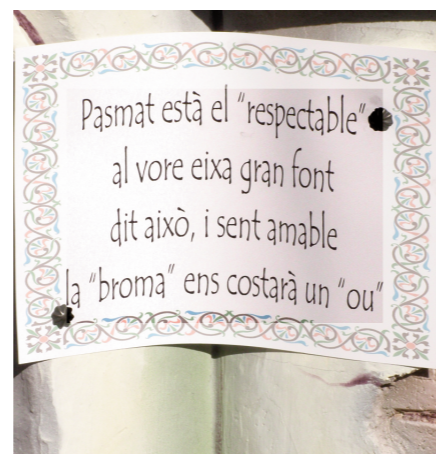 Pasmat està el "respectable"
al vore eixa gran font
dit això, i sent amable
la "broma" ens costarà un "ou"